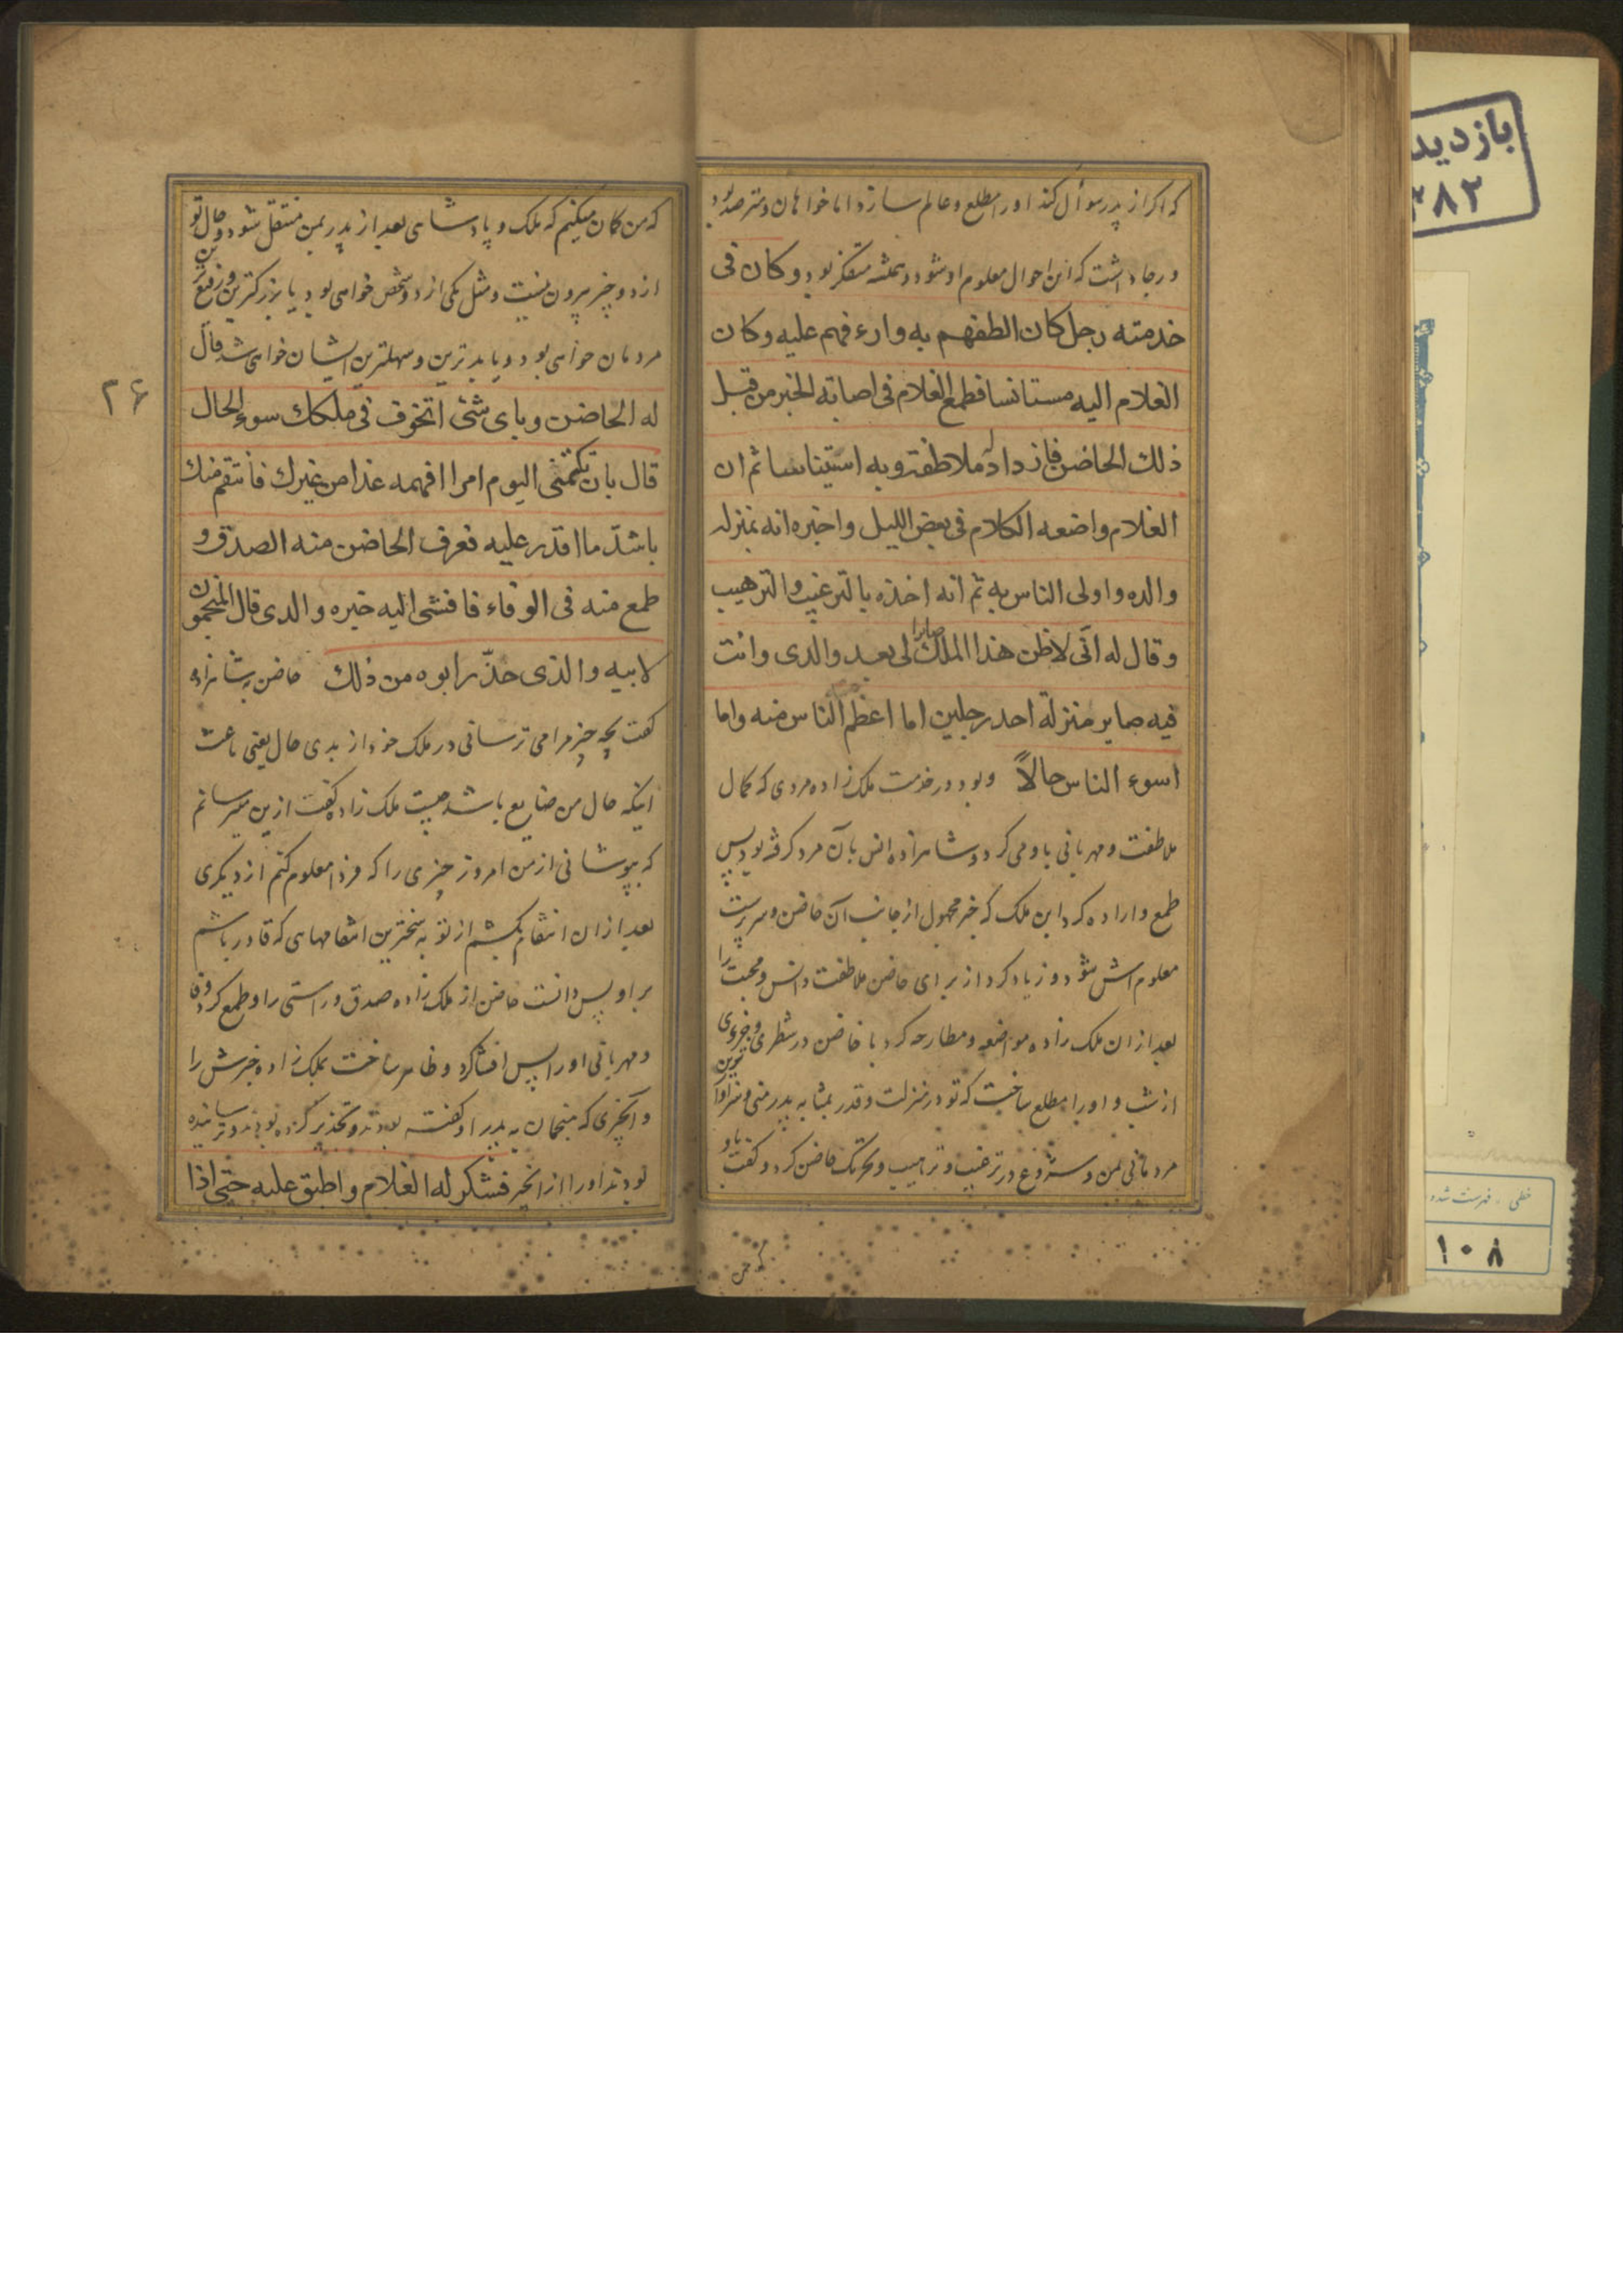 که اگر از پدر سوأل کند او را مطلع و عالم سازد اما خواهان و مترصد بود
و رجا داشت که این احوال معلوم او شود و همیشه متفکر بود وکان فی
خدمته رجل کان الطفهم به وارءفهم علیه وکان
الغلام الیه مستانسا فطمع الغلام فی اصابة الخبر من قبل
ذلك الحاضن فازداد له ملاطفة وبه استیناسا ثم ان
الغلام واضعه الکلام فی بعض اللیل واخبره انه بمنزله
والده واولی الناس به ثم انه اخذه بالترغیب والترهیب
وقال له انّی لاظن هذا الملك صایرا لی بعد والدی وانت
فیه صایر منزلة احد رجلین اما اعظم الناس منه واما
اسوء الناس حالاً و بود در خدمت ملک زاده مردی که کمال
ملاطفت و مهربانی باو می کرد و شاهزاده انس بآن مرد گرفته بود پس
طمع و اراده کرد ابن ملک که خبر مجهول از جانب آن حاضن و سرپرست
معلوم اش شود و زیاد کرد از برای حاضن ملاطفت و انس و محبت را
بعد از ان ملک زاده مواضعه و مطارحه کرد با حاضن در شطری و جزءی
از شب و او را مطلع ساخت که تو در منزلت و قدر بمثابه پدر منی و سزاوارترین
مردمانی بمن و شروع در ترغیب و ترهیب و تحریک حاضن کرد و گفت باو
که من
که من گمان میکنم که ملک و پادشاهی بعد از پدر بمن منتقل شود و حال تو
از دو چیز بیرون نیست و مثل یکی از دو شخص خواهی بود یا بزرگترین و رفیع ترین
مردمان خواهی بود و یا بدترین و سهلترین ایشان خواهی شد قال
۲۶
له الحاضن وبای شئی اتخوف فی ملکك سوء الحال
قال بان تکتمنی الیوم امرا افهمه غدا من غیرك فانتقم منك
باشدّ ما اقدر علیه فعرف الحاضن منه الصدق و
طمع منه فی الوفاء فافشی الیه خبره والدی قال المنجمون
لابیه والذی حذّر ابوه من ذلك حاضن بشاهزاده
گفت بچه چیز مرا می ترسانی در ملک خود از بدی حال یعنی باعث
اینکه حال من ضایع باشد چیست ملک زاده گفت ازین میترسانم
که بپوشانی از من امروز چیزی را که فردا معلوم کنم از دیگری
بعد از ان انتقام بکشم از تو به سخترین انتقامهای که قادر باشم
بر او پس دانست حاضن از ملک زاده صدق و راستی را و طمع کرد وفا
و مهربانی او را پس افشا کرد و ظاهر ساخت بملک زاده خبرش را
و آنچیزی که منجمان به پدر او گفته بودند و تحذیر کرده بودند و ترسانیده
بودند او را از انخبر فشکر له الغلام واطبق علیه حتی اذا
بازدید
۳۸۲
خطی ، فهرست شده
۱۰۸